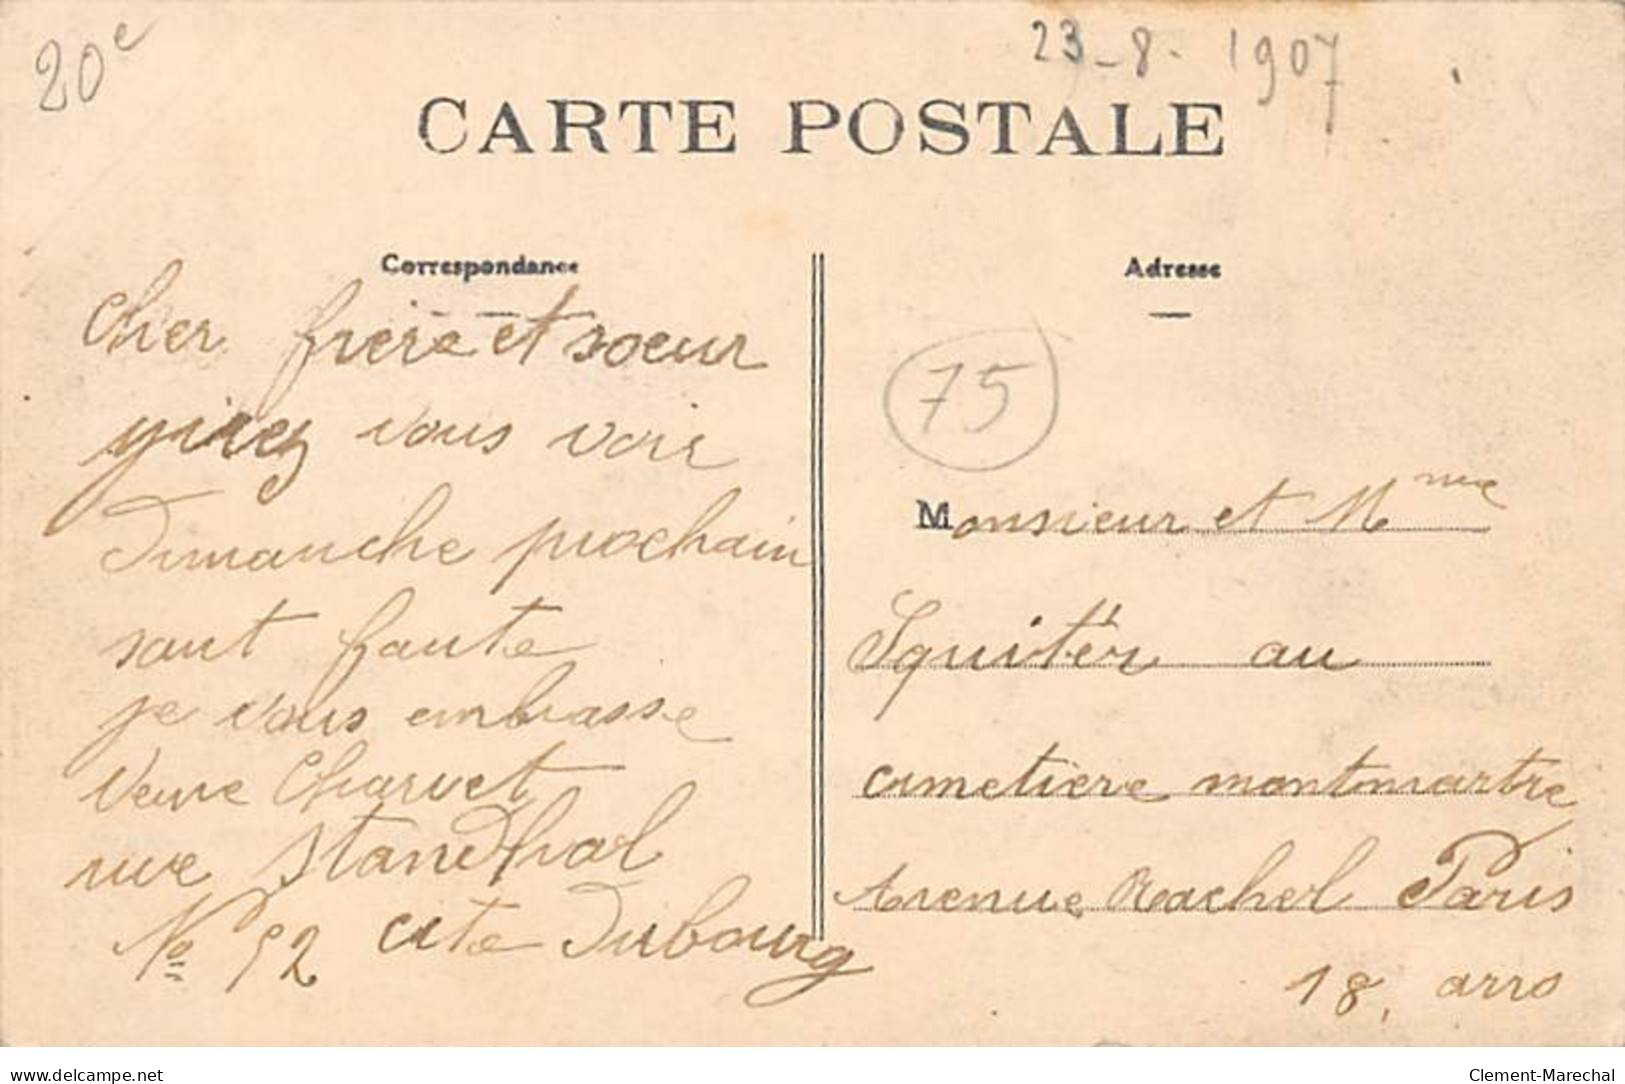 20e
23-8-1907
CARTE POSTALE
Correspondance
Cher frère et soeur
yirez vous voir
Dimanche prochain
sant faute
je vous embrasse
Veuve Charvet
rue Standhal
No 52 cite Dubourg
Adresse
75
Monsieur et Mme
Squitér au
cimetiere montmartre
Avenue Rachel Paris
18, arro
Clement-Marechal
delcampe.net